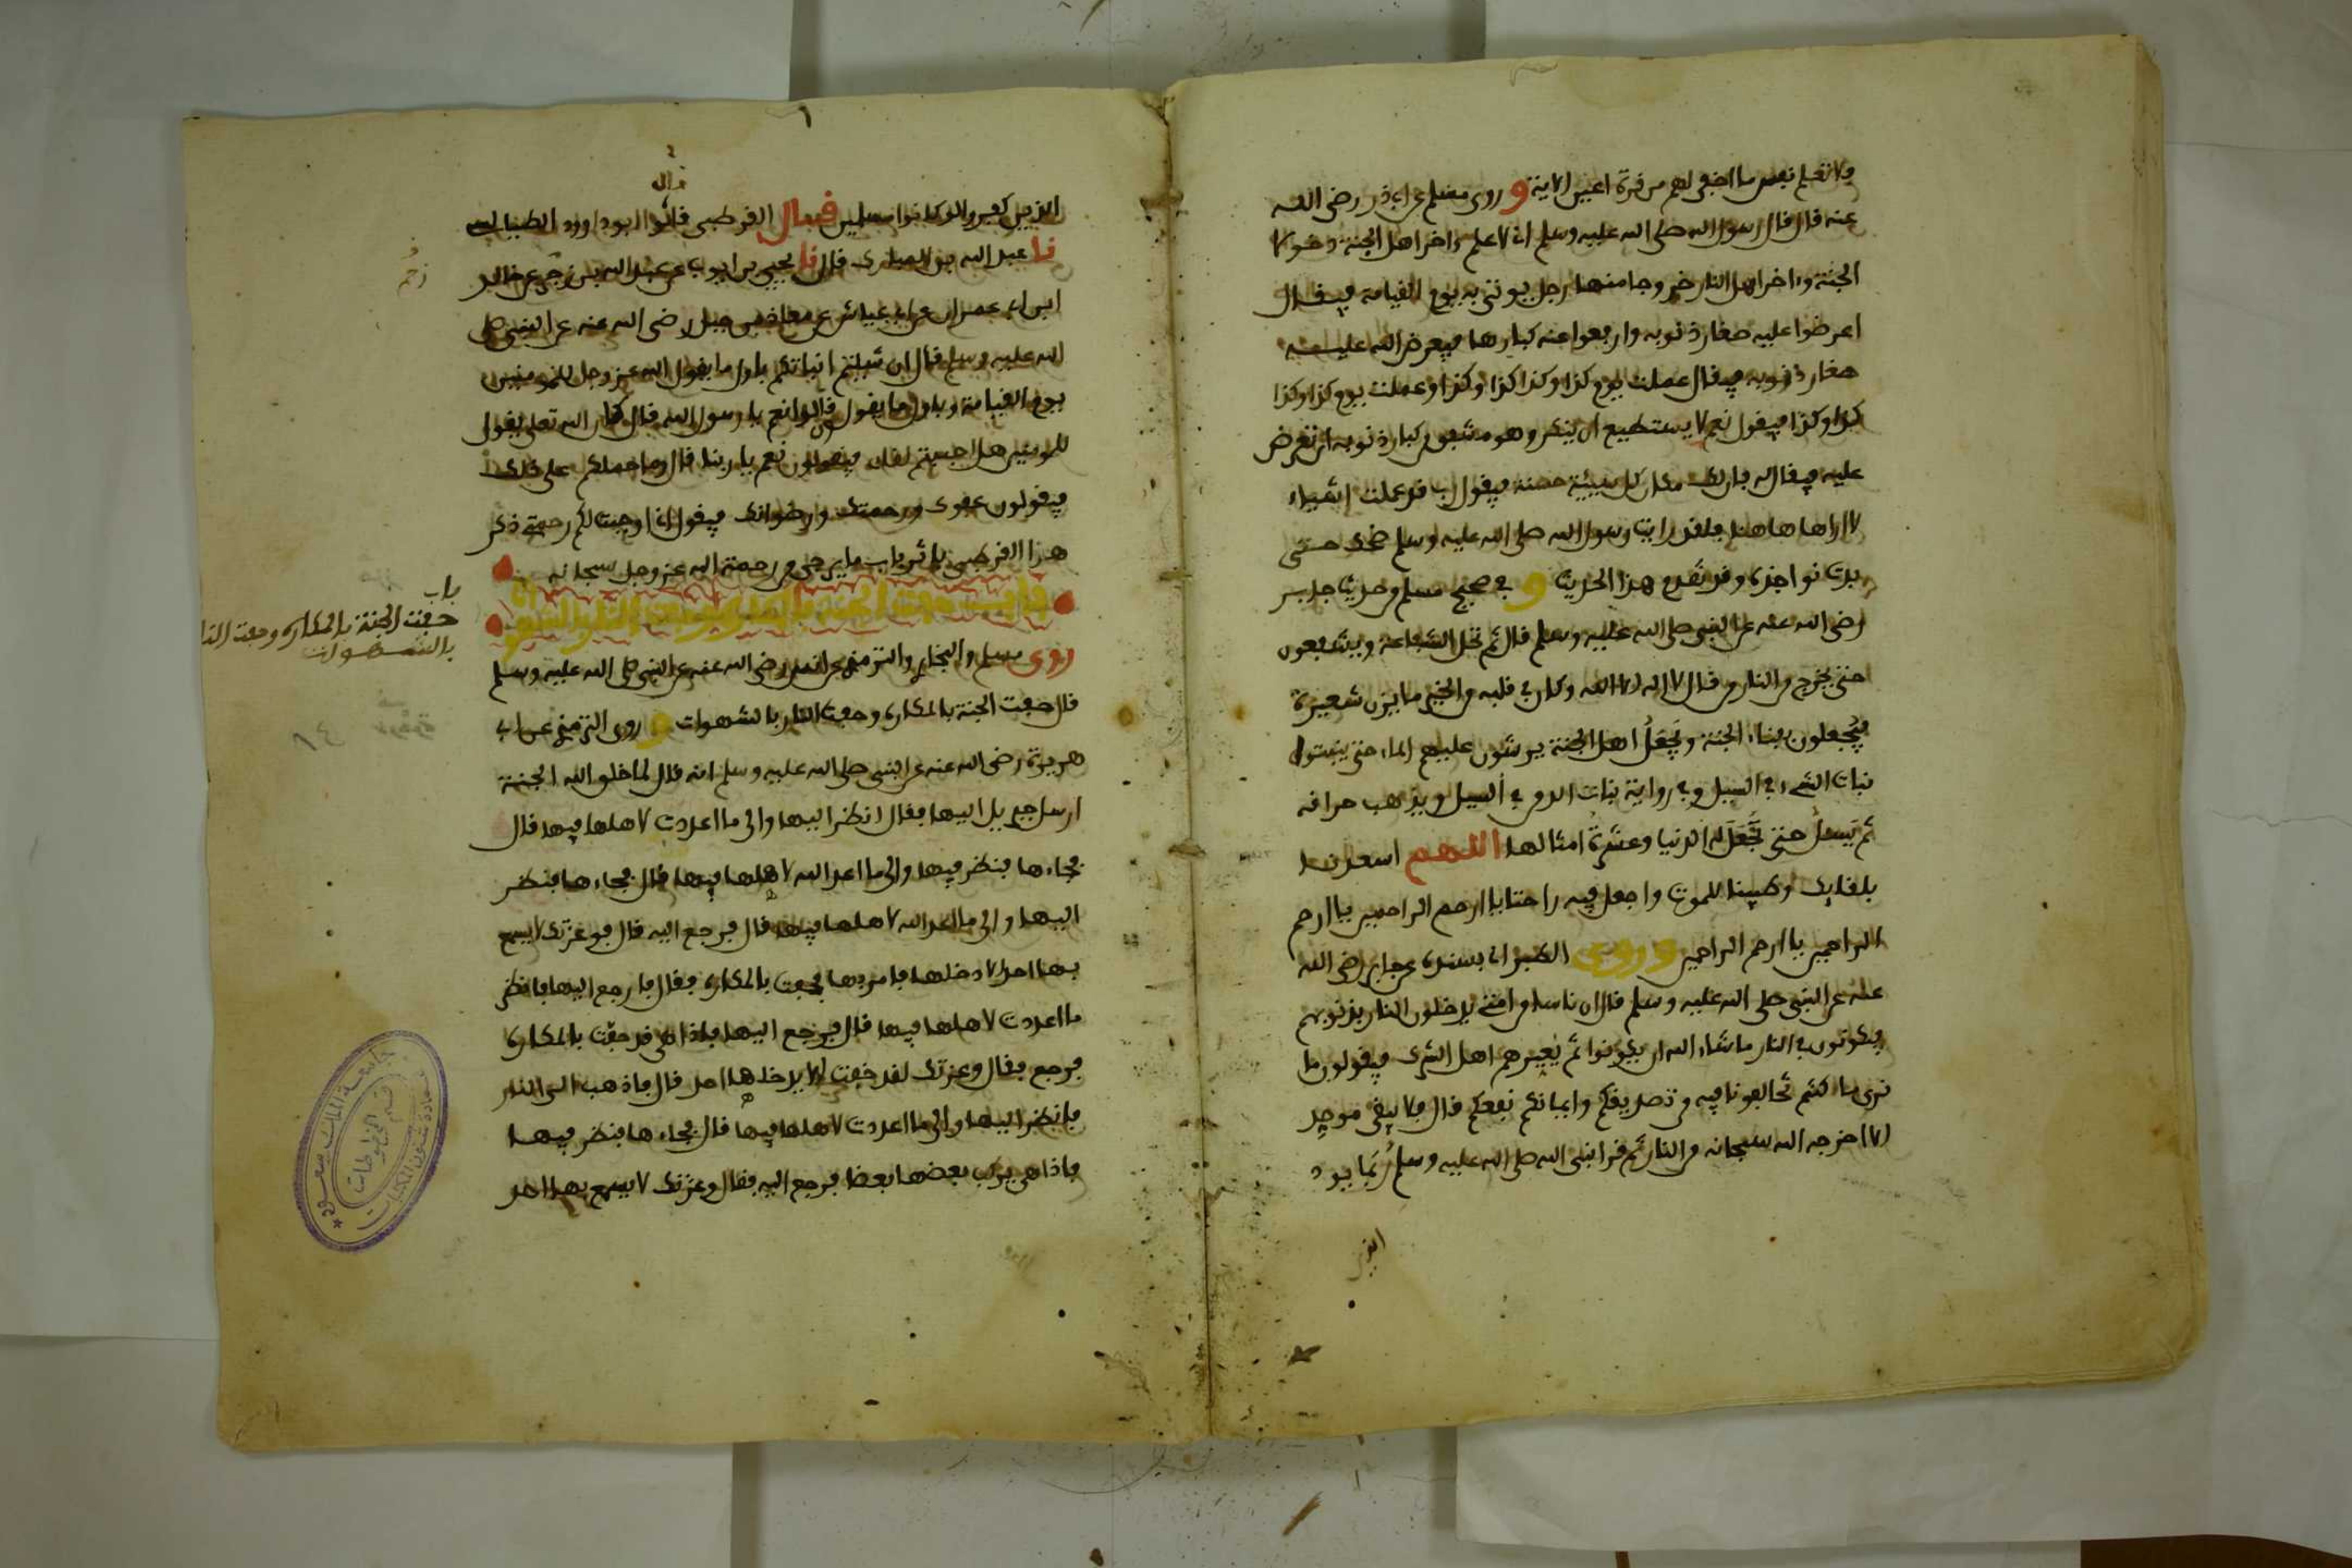 فلا تعلم نفس ما اخفى لهم من قرة اعين الاية و روى مسلم عن ابى ذر رضى الله
عنه قال قال رسول الله صلى الله عليه وسلم انى لاعلم ءاخر اهل الجنة دخولا
الجنة وءاخر اهل النار خروجا منها رجل يوتى به يوم القيامة فيقال
اعرضوا عليه صغار ذنوبه وارفعوا عنه كبارها فيعرض الله عليه
صغار ذنوبه فيقال عملت يوم كذا وكذا كذا وكذا وعملت يوم كذا وكذا
كذا وكذا فيقول نعم لا يستطيع ان ينكر وهو مشفق من كبار ذنوبه ان تعرض
عليه فيقال له فان لك مكان كل سيئة حسنة فيقول رب قد عملت اشياء
لا اراها هاهنا فلقد رايت رسول الله صلى الله عليه وسلم ضحك حتى
بدت نواجذه وقد تقدم هذا الحديث و فى صحيح مسلم من حديث جابر
رضى الله عنه عن النبى صلى الله عليه وسلم قال ثم تحل الشفاعة ويشفعون
حتى يخرج من النار من قال لا اله الا الله وكان فى قلبه من الخير ما يزن شعيرة
فيُجعلون بفناء الجنة ويَجعَلُ اهل الجنة يرشون عليهم الماء حتى ينبتوا
نبات الشىء فى السيل وفى رواية نبات الدمن فى السيل ويذهب حراقه
ثم يَسـَٔل حتى تُجعَل له الدنيا وعشرة امثالها اللهم اسعدنا
بلقايك وطيبنا للموت واجعل فيه راحتنا يا ارحم الراحمين يا ارحم
الراحمين يا ارحم الراحمين و روى الطبرانى بسنده عن جابر رضى الله
عنه عن النبى صلى الله عليه وسلم قال ان ناسا من امتى يدخلون النار بذنوبهم
فيكونون فى النار ما شاء الله ان يكونوا ثم يُعيرهم اهل الشرك فيقولون ما
نرى ما كنتم تخالفونا فيه من تصديقكم وايمانكم نفعكم قال فلا يبقى موحد
الا اخرجه الله سبحانه من النار ثم قرا النبى الله صلى الله عليه وسلم رُبَما يود
الذين
قال
الذين كفروا لو كانوا مسلمين فصل القرطبى قالوا ابو داوود الطيالسى
نا عبد الله بن المبارك قال نا يحيى بن ايوب عن عبد الله بن زحر عن خالد
زحر
ابن ابى عمران عن ابى عياش عن معاذ بن جبل رضى الله عنه عن النبى صلى
الله عليه وسلم قال ان شيتم انباتكم باول ما يقول الله عز وجل للمومنين
يوم القيامة وباول ما يقولون قالوا نعم يا رسول الله قال فان الله تعلى يقول
للمومنين هل احببتم لقاءى فيقولون نعم يا ربنا قال وما حملكم على ذلك
فيقولون عفوك ورحمتك ورضوانك فيقول انى اوجبت لكم رحمتى ذكر
هذا القرطبى باثر باب ما يرجى من رحمة الله عز وجل سبحانه
باب حفت الجنة بالمكاره وحفت النار بالشهوات
باب
حفت الجنة بالمكاره وحفت النا
بالشهوات
روى مسلم والبخارى والترمذى عن انس رضى الله عنه عن النبى صلى الله عليه وسلم
قال حفت الجنة بالمكاره وحفت النار بالشهوات و روى الترمذى عن ابى
هريرة رضى الله عنه عن النبى صلى الله عليه وسلم انه قال لما خلق الله الجنة
ارسل جبريل اليها فقال انظر اليها والى ما اعددت لاهلها فيها قال
فجاءها فنظر فيها والى ما اعد الله لاهلها فيها قال فجاءها فنظر
اليها والى ما اعد الله لاهلها فيها قال فرجع اليه قال فوعزتك لا يسمع
بها احد الا دخلها فامر بها فحفت بالمكاره فقال فارجع اليها فانظر
ما اعددت لاهلها فيها قال فرجع اليها فاذا هى قد حفت بالمكاره
فرجع فقال وعزتك لقد خفت الا يدخلها احد قال فاذهب الى النار
فانظر اليها والى ما اعددت لاهلها فيها قال فجاءها فنظر فيها
فاذا هى يركب بعضها بعضا فرجع اليه فقال وعزتك لا يسمع بها احد
جامعة الملك سعود
عمادة شئون المكتبات
قسم المخطوطات